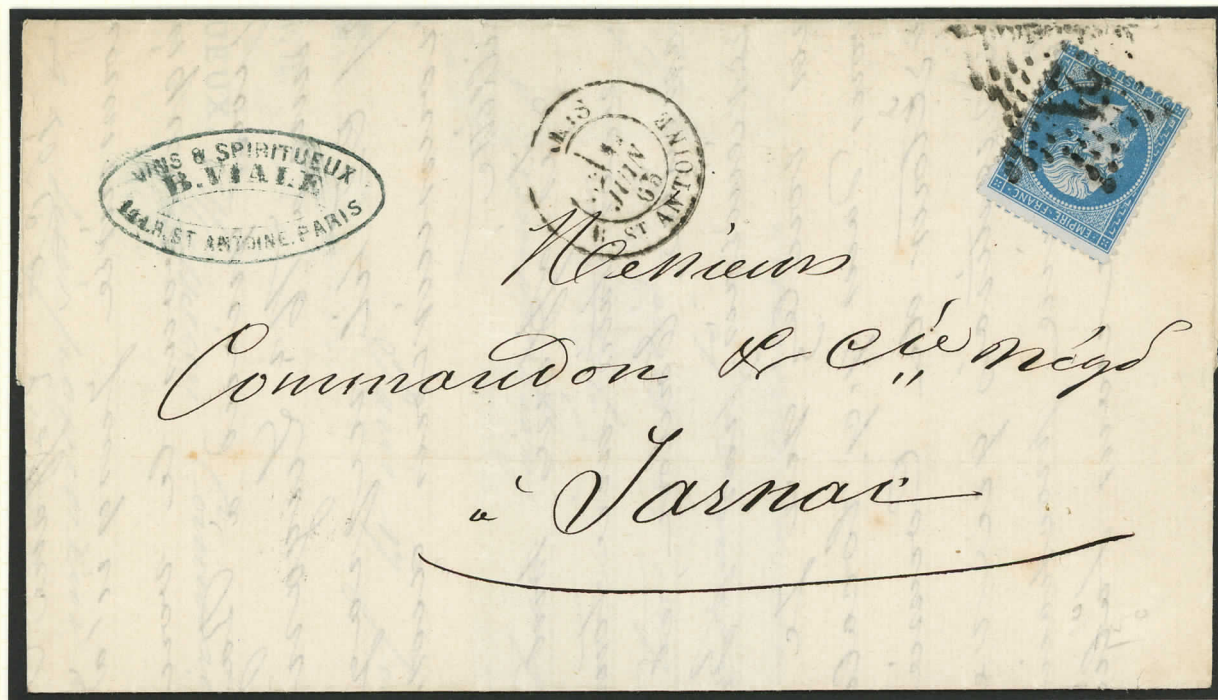 VINS & SPIRITUEUX
B. VIALE
R. ST ANTOINE. PARIS
JUIN
65
R. ST ANTOINE
EMPIRE FRANC
Messieurs
Commandon & Cie négt
à Jarnac